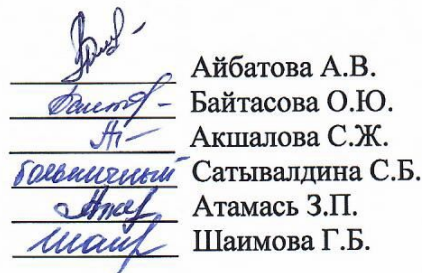 Айбатова А.В.
Байтасова О.Ю.
Акшалова С.Ж.
больничный Сатывалдина С.Б.
Атамась З.П.
Шаимова Г.Б.